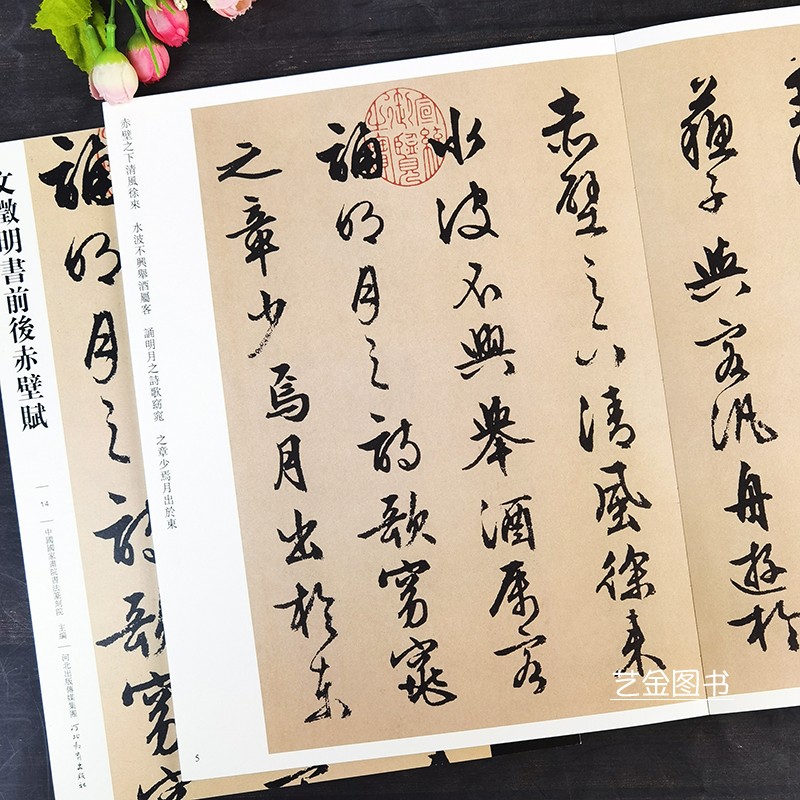 蘇子與客汎舟遊於
赤壁之下清風徐來
水波不興舉酒屬客
誦明月之詩歌窈窕
之章少焉月出於東
宣統御覽之寶
赤壁之下清風徐來 水波不興舉酒屬客 誦明月之詩歌窈窕 之章少焉月出於東
5
誦明月之詩歌窈
文徵明書前後赤壁賦
14
中國國家畫院書法篆刻院 主編
河北出版傳媒集團
河北教育出版社
艺金图书